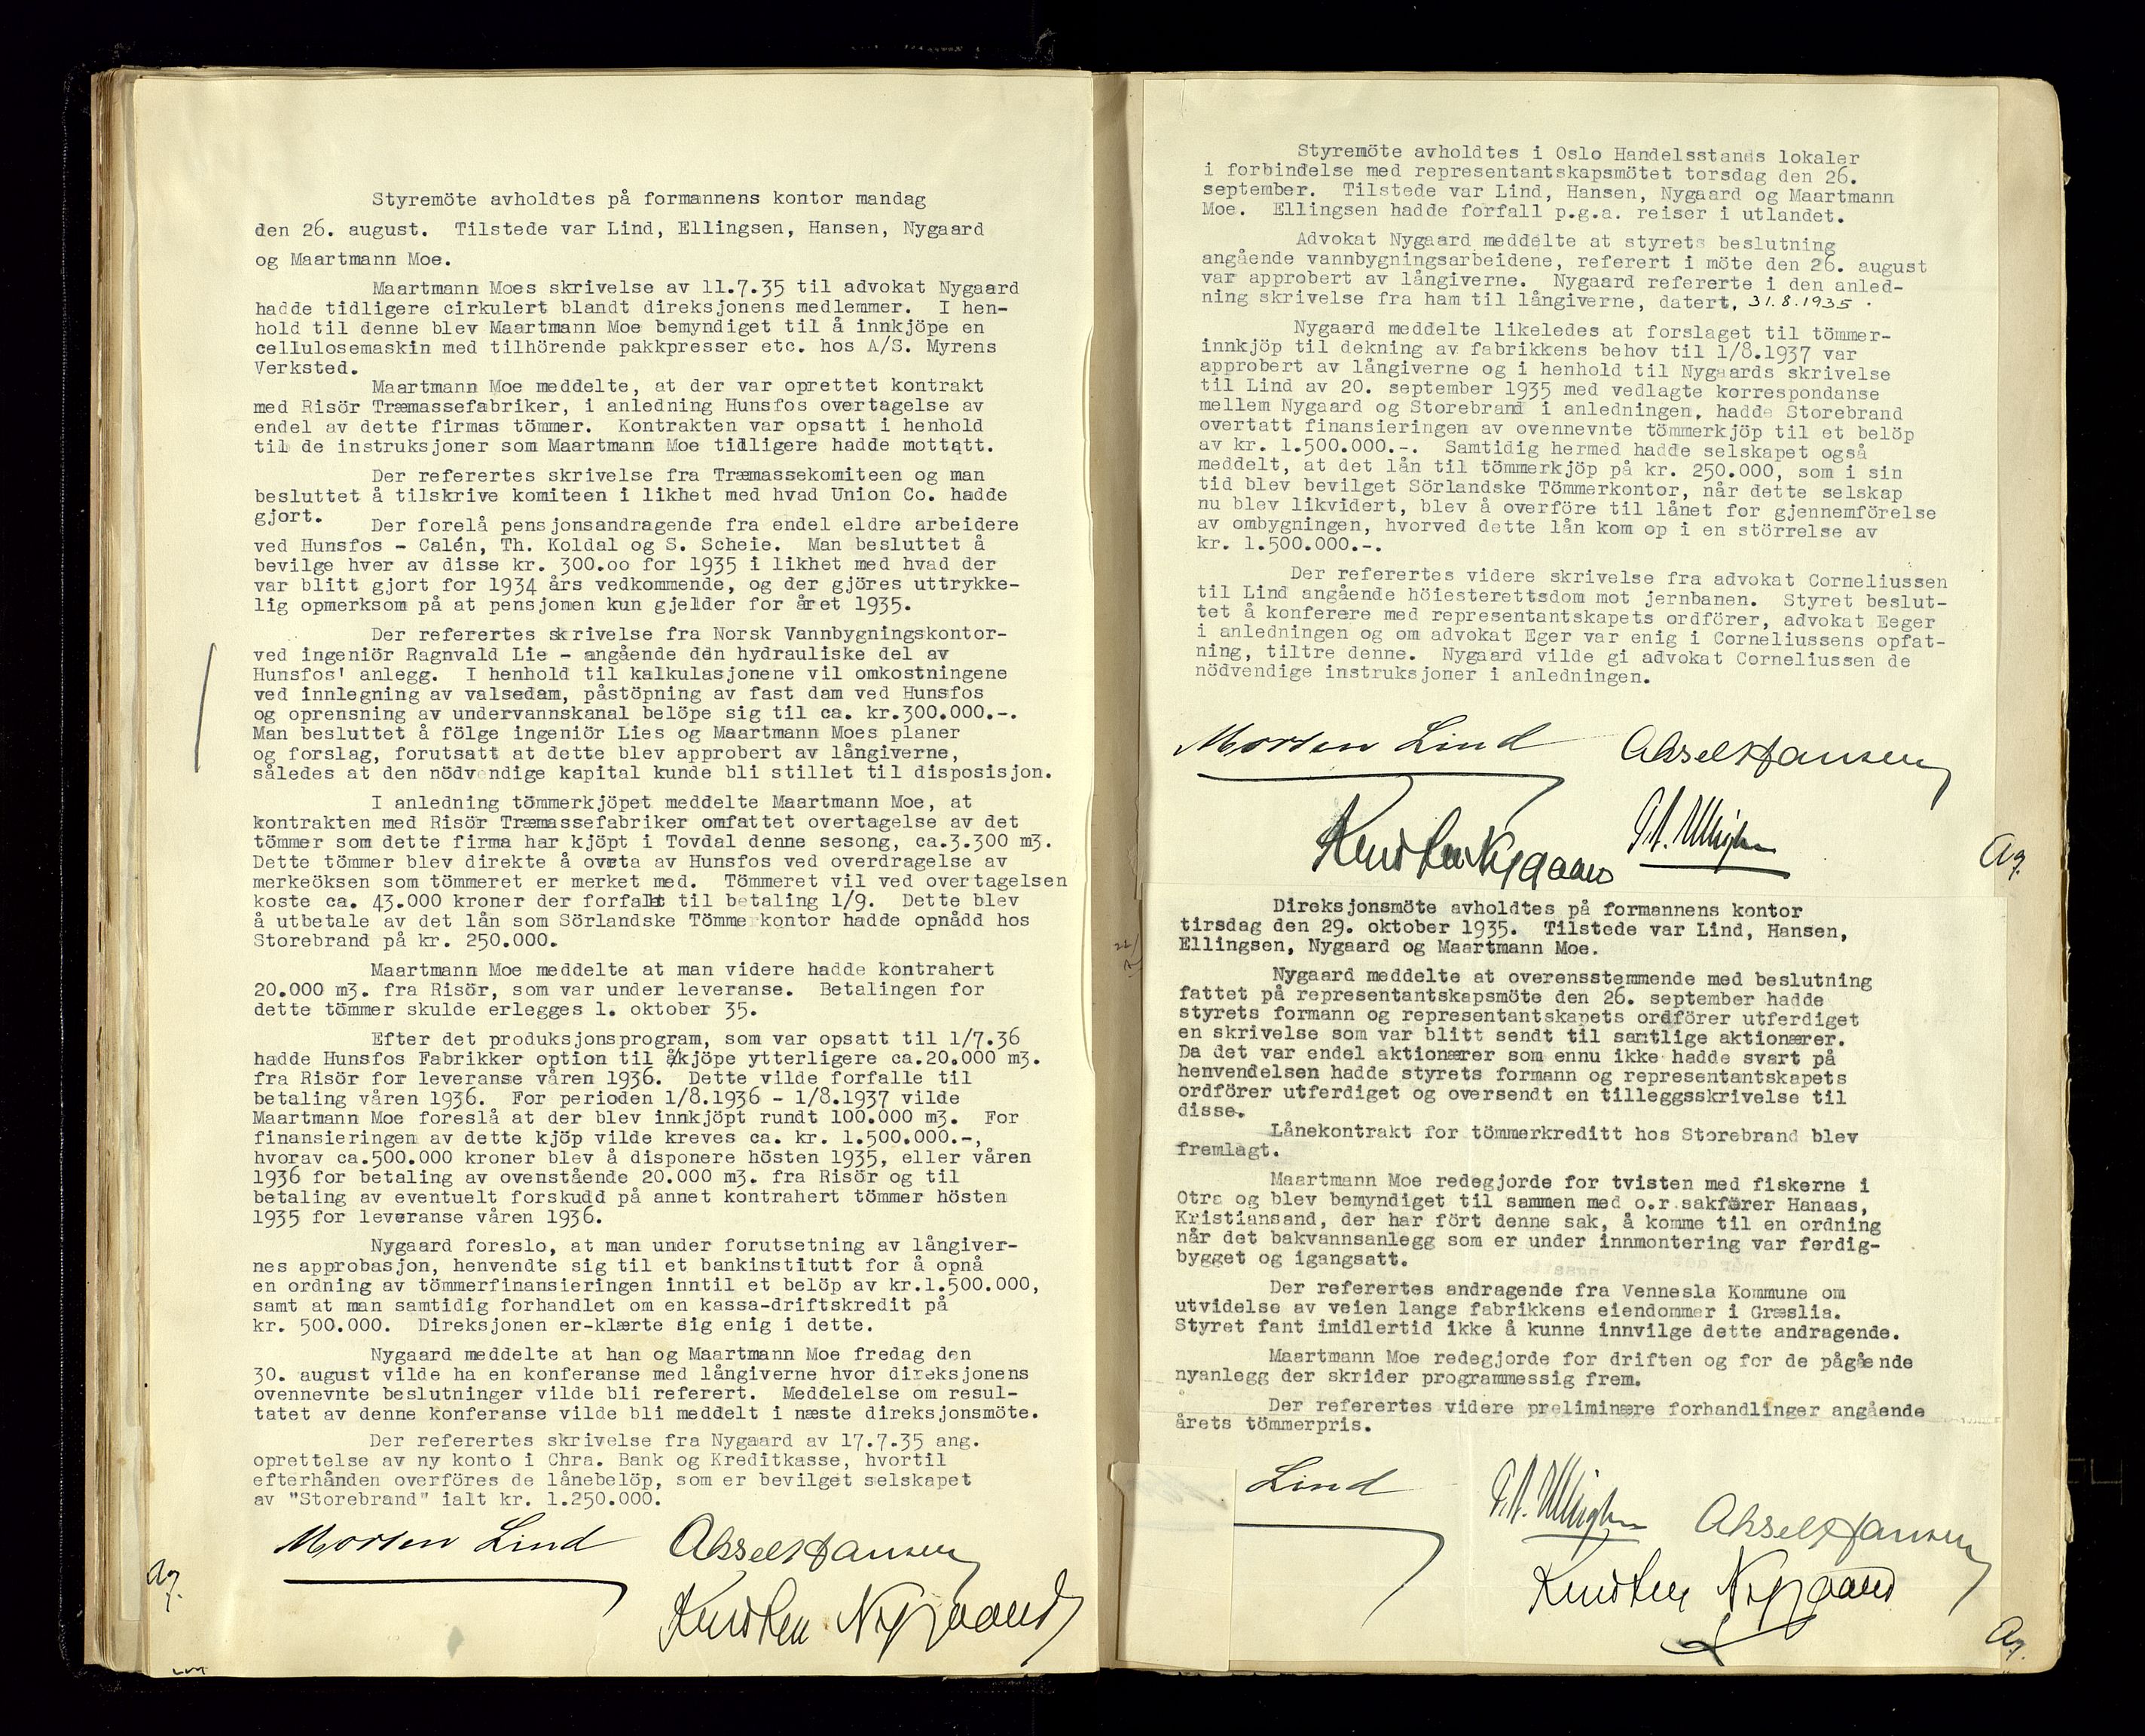 Styremöte avholdtes på formannens kontor mandag
den 26. august.  Tilstede var Lind, Ellingsen, Hansen, Nygaard
og Maartmann Moe.
Maartmann Moes skrivelse av 11.7.35 til advokat Nygaard
hadde tidligere cirkulert blandt direksjonens medlemmer.  I hen-
hold til denne blev Maartmann Moe bemyndiget til å innkjöpe en
cellulosemaskin med tilhörende pakkpresser etc. hos A/S. Myrens
Verksted.
Maartmann Moe meddelte, at der var oprettet kontrakt
med Risör Træmassefabriker, i anledning Hunsfos overtagelse av
endel av dette firmas tömmer.  Kontrakten var opsatt i henhold
til de instruksjoner som Maartmann Moe tidligere hadde mottatt.
Der referertes skrivelse fra Træmassekomiteen og man
besluttet å tilskrive komiteen i likhet med hvad Union Co. hadde
gjort.
Der forelå pensjonsandragende fra endel eldre arbeidere
ved Hunsfos - Calén, Th. Koldal og S. Scheie.  Man besluttet å
bevilge hver av disse kr. 300.oo for 1935 i likhet med hvad der
var blitt gjort for 1934 års vedkommende, og der gjöres uttrykke-
lig opmerksom på at pensjonen kun gjelder for året 1935.
Der referertes skrivelse fra Norsk Vannbygningskontor-
ved ingeniör Ragnvald Lie - angående den hydrauliske del av
Hunsfos' anlegg.  I henhold til kalkulasjonene vil omkostningene
ved innlegning av valsedam, påstöpning av fast dam ved Hunsfos
og oprensning av undervannskanal belöpe sig til ca. kr.300.000.-.
Man besluttet å fölge ingeniör Lies og Maartmann Moes planer
og forslag, forutsatt at dette blev approbert av långiverne,
således at den nödvendige kapital kunde bli stillet til disposisjon.
I anledning tömmerkjöpet meddelte Maartmann Moe, at
kontrakten med Risör Træmassefabriker omfattet overtagelse av det
tömmer som dette firma har kjöpt i Tovdal denne sesong, ca.3.300 m3.
Dette tömmer blev direkte å overta av Hunsfos ved overdragelse av
merkeöksen som tömmeret er merket med.  Tömmeret vil ved overtagelsen
koste ca. 43.000 kroner der forfalt til betaling 1/9.  Dette blev
å utbetale av det lån som Sörlandske Tömmerkontor hadde opnådd hos
Storebrand på kr. 250.000.
Maartmann Moe meddelte at man videre hadde kontrahert
20.000 m3. fra Risör, som var under leveranse.  Betalingen for
dette tömmer skulde erlegges 1. oktober 35.
Efter det produksjonsprogram, som var opsatt til 1/7.36
hadde Hunsfos Fabrikker option til å kjöpe ytterligere ca.20.000 m3.
fra Risör for leveranse våren 1936.  Dette vilde forfalle til
betaling våren 1936.  For perioden 1/8.1936 - 1/8.1937 vilde
Maartmann Moe foreslå at der blev innkjöpt rundt 100.000 m3.  For
finansieringen av dette kjöp vilde kreves ca. kr. 1.500.000.-,
hvorav ca.500.000 kroner blev å disponere hösten 1935, eller våren
1936 for betaling av ovenstående 20.000 m3. fra Risör og til
betaling av eventuelt forskudd på annet kontrahert tömmer hösten
1935 for leveranse våren 1936.
Nygaard foreslo, at man under forutsetning av långiver-
nes approbasjon, henvendte sig til et bankinstitutt for å opnå
en ordning av tömmerfinansieringen inntil et belöp av kr.1.500.000,
samt at man samtidig forhandlet om en kassa-driftskredit på
kr. 500.000.  Direksjonen er-klærte sig enig i dette.
Nygaard meddelte at han og Maartmann Moe fredag den
30. august vilde ha en konferanse med långiverne hvor direksjonens
ovennevnte beslutninger vilde bli referert.  Meddelelse om resul-
tatet av denne konferanse vilde bli meddelt i næste direksjonsmöte.
Der referertes skrivelse fra Nygaard av 17.7.35 ang.
oprettelse av ny konto i Chra. Bank og Kreditkasse, hvortil
efterhånden overföres de lånebelöp, som er bevilget selskapet
av "Storebrand" ialt kr. 1.250.000.
Morten Lind  Aksel Hansen
Karsten Nygaard
Ag.
Styremöte avholdtes i Oslo Handelsstands lokaler
i forbindelse med representantskapsmötet torsdag den 26.
september.  Tilstede var Lind, Hansen, Nygaard og Maartmann
Moe.  Ellingsen hadde forfall p.g.a. reiser i utlandet.
Advokat Nygaard meddelte at styrets beslutning
angående vannbygningsarbeidene, referert i möte den 26. august
var approbert av långiverne.  Nygaard refererte i den anled-
ning skrivelse fra ham til långiverne, datert, 31.8.1935.
Nygaard meddelte likeledes at forslaget til tömmer-
innkjöp til dekning av fabrikkens behov til 1/8.1937 var
approbert av långiverne og i henhold til Nygaards skrivelse
til Lind av 20. september 1935 med vedlagte korrespondanse
mellem Nygaard og Storebrand i anledningen, hadde Storebrand
overtatt finansieringen av ovennevnte tömmerkjöp til et belöp
av kr. 1.500.000.-.  Samtidig hermed hadde selskapet også
meddelt, at det lån til tömmerkjöp på kr. 250.000, som i sin
tid blev bevilget Sörlandske Tömmerkontor, når dette selskap
nu blev likvidert, blev å overföre til lånet for gjennemförelse
av ombygningen, hvorved dette lån kom op i en störrelse av
kr. 1.500.000.-.
Der referertes videre skrivelse fra advokat Corneliussen
til Lind angående höiesterettsdom mot jernbanen.  Styret beslut-
tet å konferere med representantskapets ordförer, advokat Eeger
i anledningen og om advokat Eger var enig i Corneliussens opfat-
ning, tiltre denne.  Nygaard vilde gi advokat Corneliussen de
nödvendige instruksjoner i anledningen.
Morten Lind  Aksel Hansen
Karsten Nygaard
Ag.
Direksjonsmöte avholdtes på formannens kontor
tirsdag den 29. oktober 1935.  Tilstede var Lind, Hansen,
Ellingsen, Nygaard og Maartmann Moe.
Nygaard meddelte at overensstemmende med beslutning
fattet på representantskapsmöte den 26. september hadde
styrets formann og representantskapets ordförer utferdiget
en skrivelse som var blitt sendt til samtlige aktionærer.
Da det var endel aktionærer som ennu ikke hadde svart på
henvendelsen hadde styrets formann og representantskapets
ordförer utferdiget og oversendt en tilleggsskrivelse til
disse.
Lånekontrakt for tömmerkreditt hos Storebrand blev
fremlagt.
Maartmann Moe redegjorde for tvisten med fiskerne i
Otra og blev bemyndiget til sammen med o.r.sakförer Hanaas,
Kristiansand, der har fört denne sak, å komme til en ordning
når det bakvannsanlegg som er under innmontering var ferdig-
bygget og igangsatt.
Der referertes andragende fra Vennesla Kommune om
utvidelse av veien langs fabrikkens eiendommer i Græslia.
Styret fant imidlertid ikke å kunne innvilge dette andragende.
Maartmann Moe redegjorde for driften og for de pågående
nyanlegg der skrider programmessig frem.
Der referertes videre preliminære forhandlinger angående
årets tömmerpris.
Lind  Aksel Hansen
Karsten Nygaard
Ag.